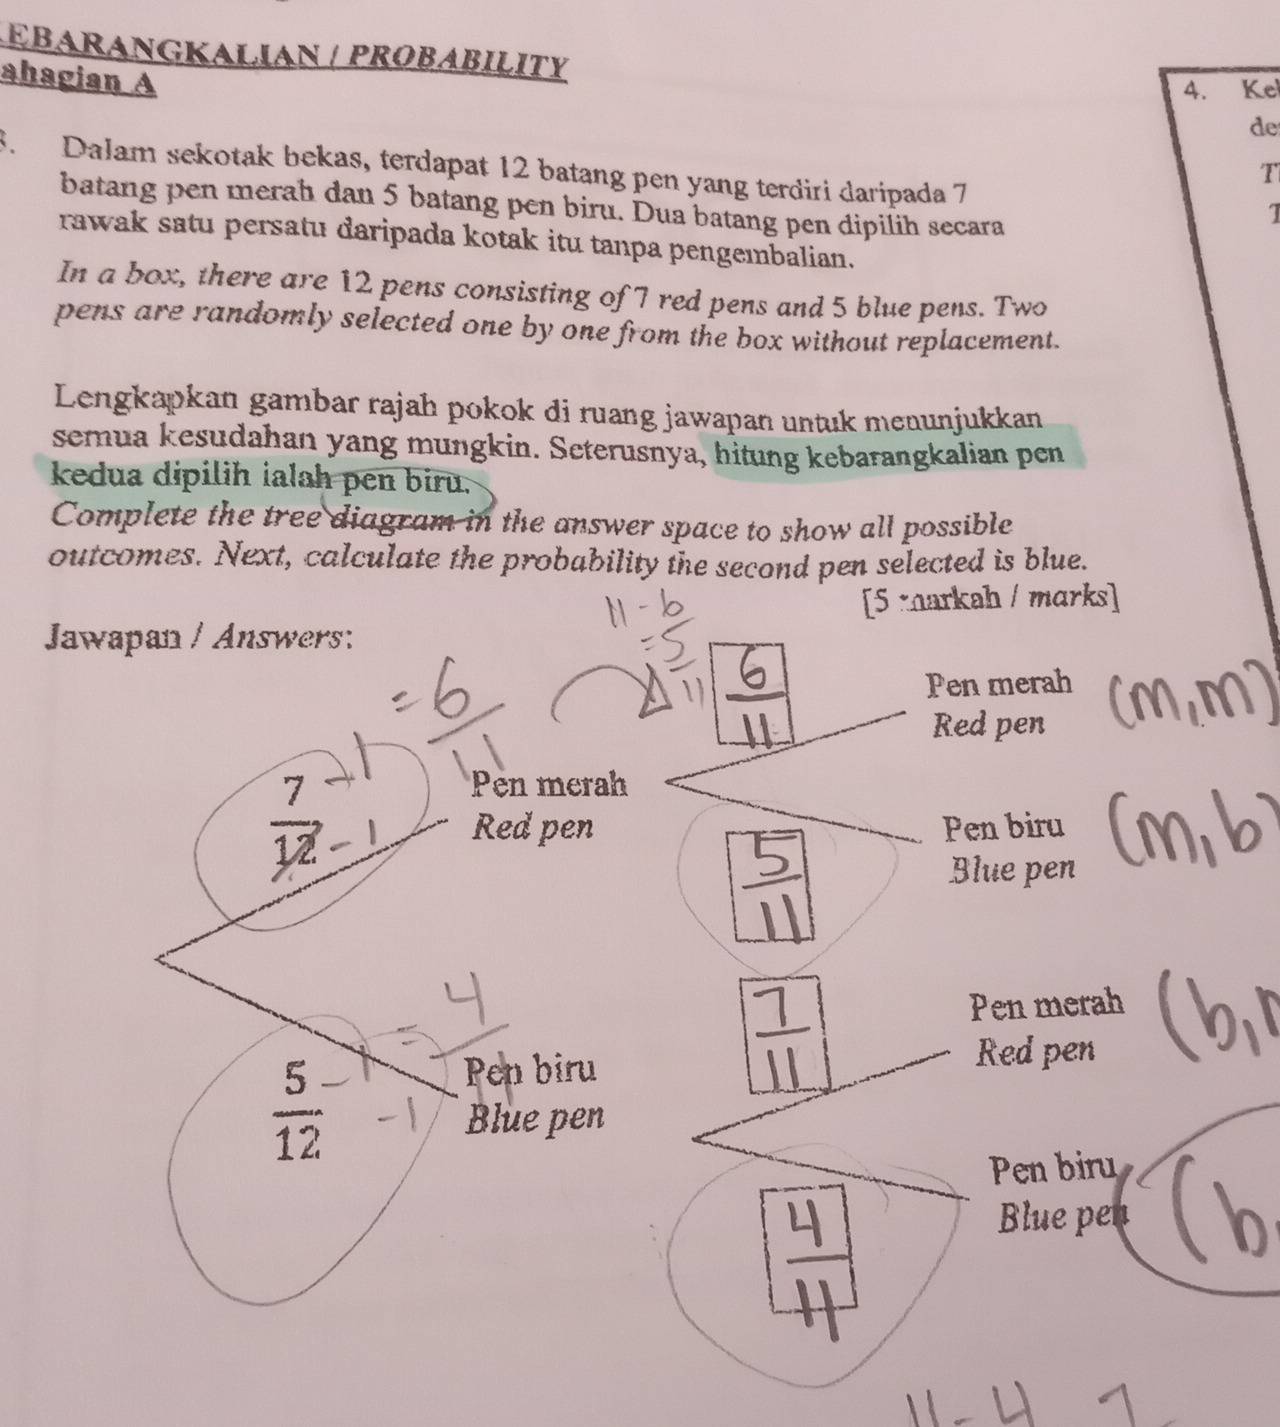 EBARANGKALIAN / PROBABILITY
ahagian A
Dalam sekotak bekas, terdapat 12 batang pen yang terdiri daripada 7
batang pen merah dan 5 batang pen biru. Dua batang pen dipilih secara
rawak satu persatu daripada kotak itu tanpa pengembalian.
In a box, there are 12 pens consisting of 7 red pens and 5 blue pens. Two
pens are randomly selected one by one from the box without replacement.
Lengkapkan gambar rajah pokok di ruang jawapan untuk menunjukkan
semua kesudahan yang mungkin. Seterusnya, hitung kebarangkalian pen
kedua dipilih ialah pen biru.
Complete the tree diagram in the answer space to show all possible
outcomes. Next, calculate the probability the second pen selected is blue.
[5 markah / marks]
Jawapan / Answers:
11 - 6
= 5
11
6
11
Pen merah (m, m)
Red pen
= 6
11
7 - 1
12 - 1
Pen merah
Red pen
5
11
Pen biru (m, b)
Blue pen
7
11
Pen merah (b,
Red pen
5 - 1 = 4
12 - 1
Pen biru
Blue pen
4
11
Pen biru (b,
Blue pen
11 - 4 7
4. Keb
de
T